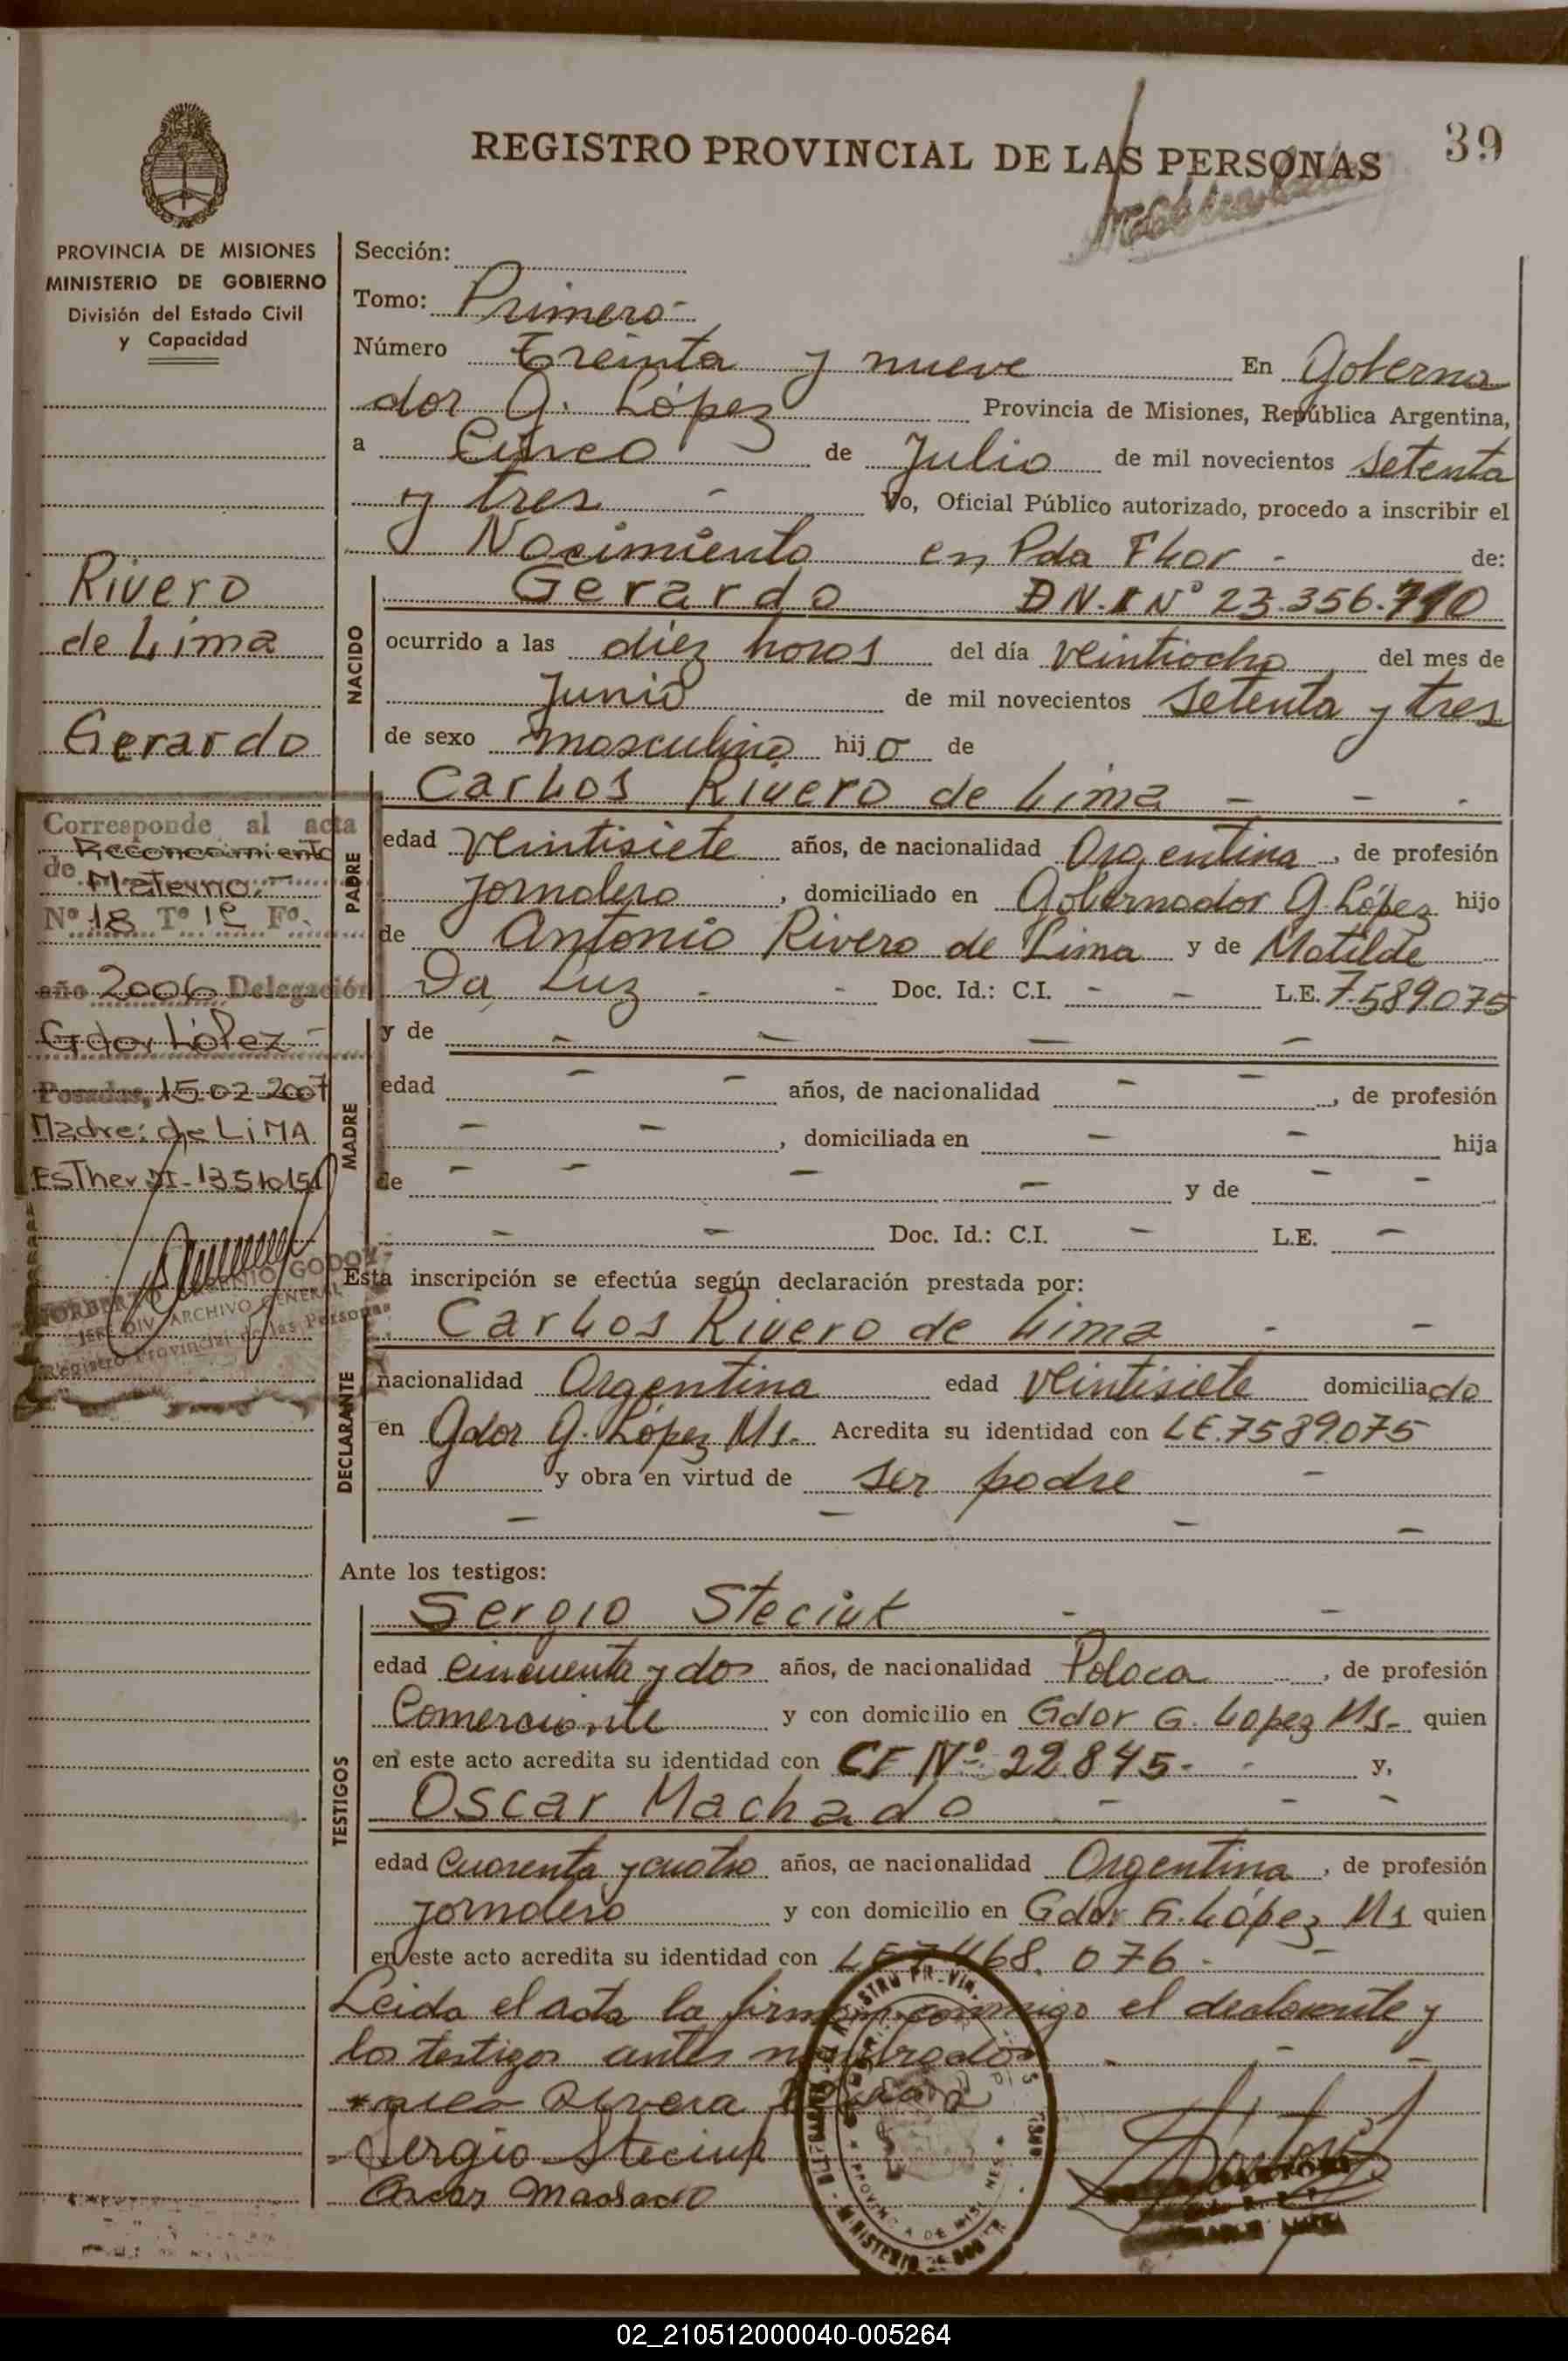 39
REGISTRO PROVINCIAL DE LAS PERSONAS
PROVINCIA DE MISIONES
MINISTERIO DE GOBIERNO
División del Estado Civil
y Capacidad
Rivero
de Lima
Gerardo
Corresponde al acta
de Reconocimiento
Materno.-
Nº 18 Tº 1º Fº.
año 2006 Delegación
Gdor López -
Posadas, 15-02-2007
Madre: de LiMA
EsTher
NORBERTO EUGENIO GODOY
JEFE DIV. ARCHIVO GENERAL
Registro Provincial de las Personas
Sección:
Tomo: Primero-
Número Treinta y nueve En Goberna
dor G. López Provincia de Misiones, República Argentina,
a Cinco de Julio de mil novecientos setenta
y tres - Yo, Oficial Público autorizado, procedo a inscribir el
Nacimiento en Pda Flor - de:
NACIDO
Gerardo D N.I Nº 23.356.710
ocurrido a las diez horas del día veintiocho del mes de
Junio de mil novecientos setenta y tres
de sexo masculino hijo de
PADRE
Carlos Rivero de Lima - - -
edad veintisiete años, de nacionalidad Argentina, de profesión
jornalero, domiciliado en Gobernador G. López hijo
de Antonio Rivero de Lima y de Matilde
Da Luz - - Doc. Id.: C.I. - - L.E. 7.589.075
MADRE
y de - - - -
edad - - años, de nacionalidad - -, de profesión
- -, domiciliada en - - hija
de - - - - y de - -
- - Doc. Id.: C.I. - L.E. -
Esta inscripción se efectúa según declaración prestada por:
DECLARANTE
Carlos Rivero de Lima - -
nacionalidad Argentina edad veintisiete domiciliado
en Gdor G. López Ms.- Acredita su identidad con LE.7589.075
y obra en virtud de ser padre -
- - - -
Ante los testigos:
TESTIGOS
Sergio Steciuk - -
edad cincuenta y dos años, de nacionalidad Polaca, de profesión
Comerciante y con domicilio en Gdor G. Lopez Ms.- quien
en este acto acredita su identidad con CF Nº 22.845- - y,
Oscar Machado - - -
edad cuarenta y cuatro años, de nacionalidad Argentina, de profesión
jornalero y con domicilio en Gdor G. López Ms quien
en este acto acredita su identidad con LE 7468.076 - -
Leida el acta la firman conmigo el declarante y
los testigos antes nombrados - - -
Rivera
Sergio Steciuk
Oscar Machado
PROVINCIA DE MISIONES
02_210512000040-005264